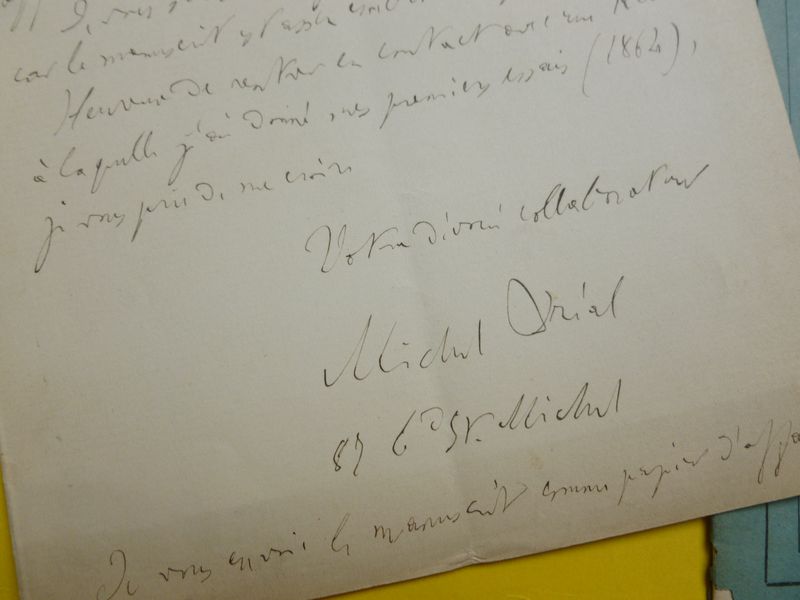 Je vous
car le manuscrit est assez
Heureux de rentrer en contact avec une
à laquelle j'ai donné mes premiers essais (1864),
je vous prie de me croire
Votre dévoué collaborateur
Michel Bréal
87 bd St. Michel
Je vous envoie le manuscrit comme papier d'affa